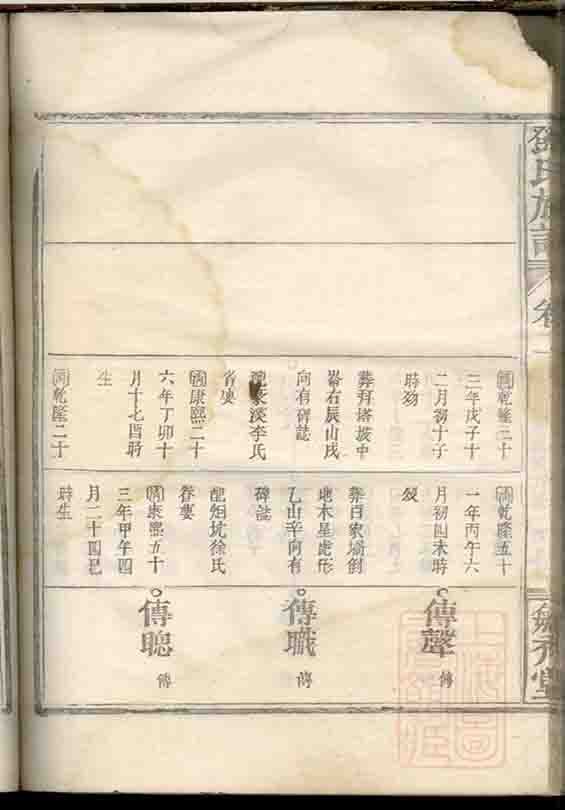 氏族
卷一
清乾隆三十
三年戊子十
二月初十子
時歿
葬拜塔坡中
崙右辰山戌
向有碑誌
配梁溪李氏
省要
清康熙二十
六年丁卯十
月十七酉時
生
清乾隆二十
清乾隆五十
一年丙午六
月初四未時
歿
葬百家塲倒
地木星虎形
乙山辛向有
碑誌
配烟坑徐氏
春要
清康熙五十
三年甲午四
月二十四巳
時生
傳聲 傳
傳職 傳
傳聰 傳
堂